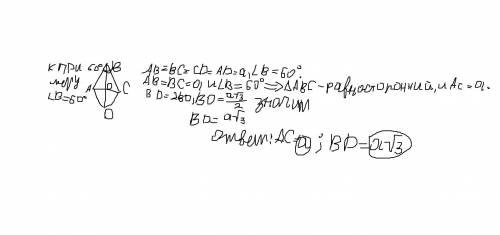 к при
меру
∠B=60°
B
A
C
O
D
AB=BC=CD=AD=a, ∠B=60°.
AB=BC=a, и ∠B=60° ⇒ △ABC-равносторонний, и AC=a.
BD=2BO, BO=a√3/2 значит
BD=a√3
ответ: AC=a; BD=a√3